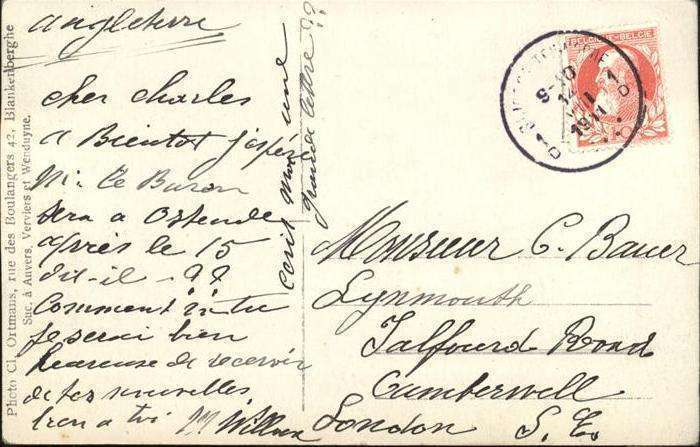 Photo Cl. Ortmans, rue des Boulangers 42, Blankenberghe
Suc. à Anvers, Verviers et Wenduyne.
Angleterre
cher charles
a Bientot j'espère
Mr Le Baron
sera a Ostende
après le 15
dit-il - ??
Comment vas tu
je serai bien
heureuse de recevoir
de tes nouvelles
bien a toi M Willox
ecrit moi une
grande lettre ??
BELGIQUE BELGIË
9-10
14
VIII
1911
Monsieur C. Bauer
Lynmouth
Talfourd Road
Camberwell
London S. E.